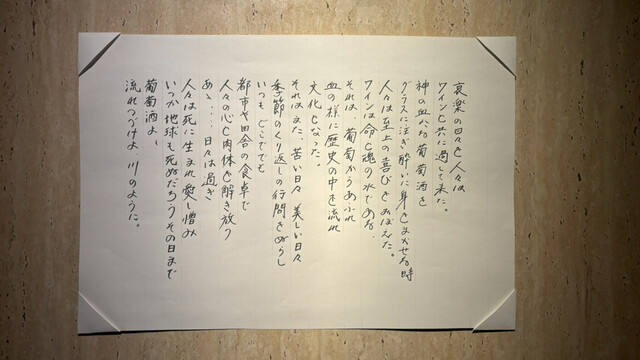 哀楽の日々を人々は
ワインと共に過して来た。
神の血なる葡萄酒を
グラスに注ぎ酔いに身をまかせる時
人々は至上の喜びをおぼえた。
ワインは命と魂の水である、
それは、葡萄からあふれ
血の様に歴史の中を流れ
文化となった。
それはまた、苦い日々 美しい日々
季節のくり返しの行間をぬらし
いつも どこででも
都市や田舎の食卓で
人々の心と肉体を解き放つ
あゝ・・・・日々は過ぎ
人々は死に生まれ愛し憎み
いつか地球も死ぬだろうその日まで
葡萄酒よ、
流れつづけよ 川のように。